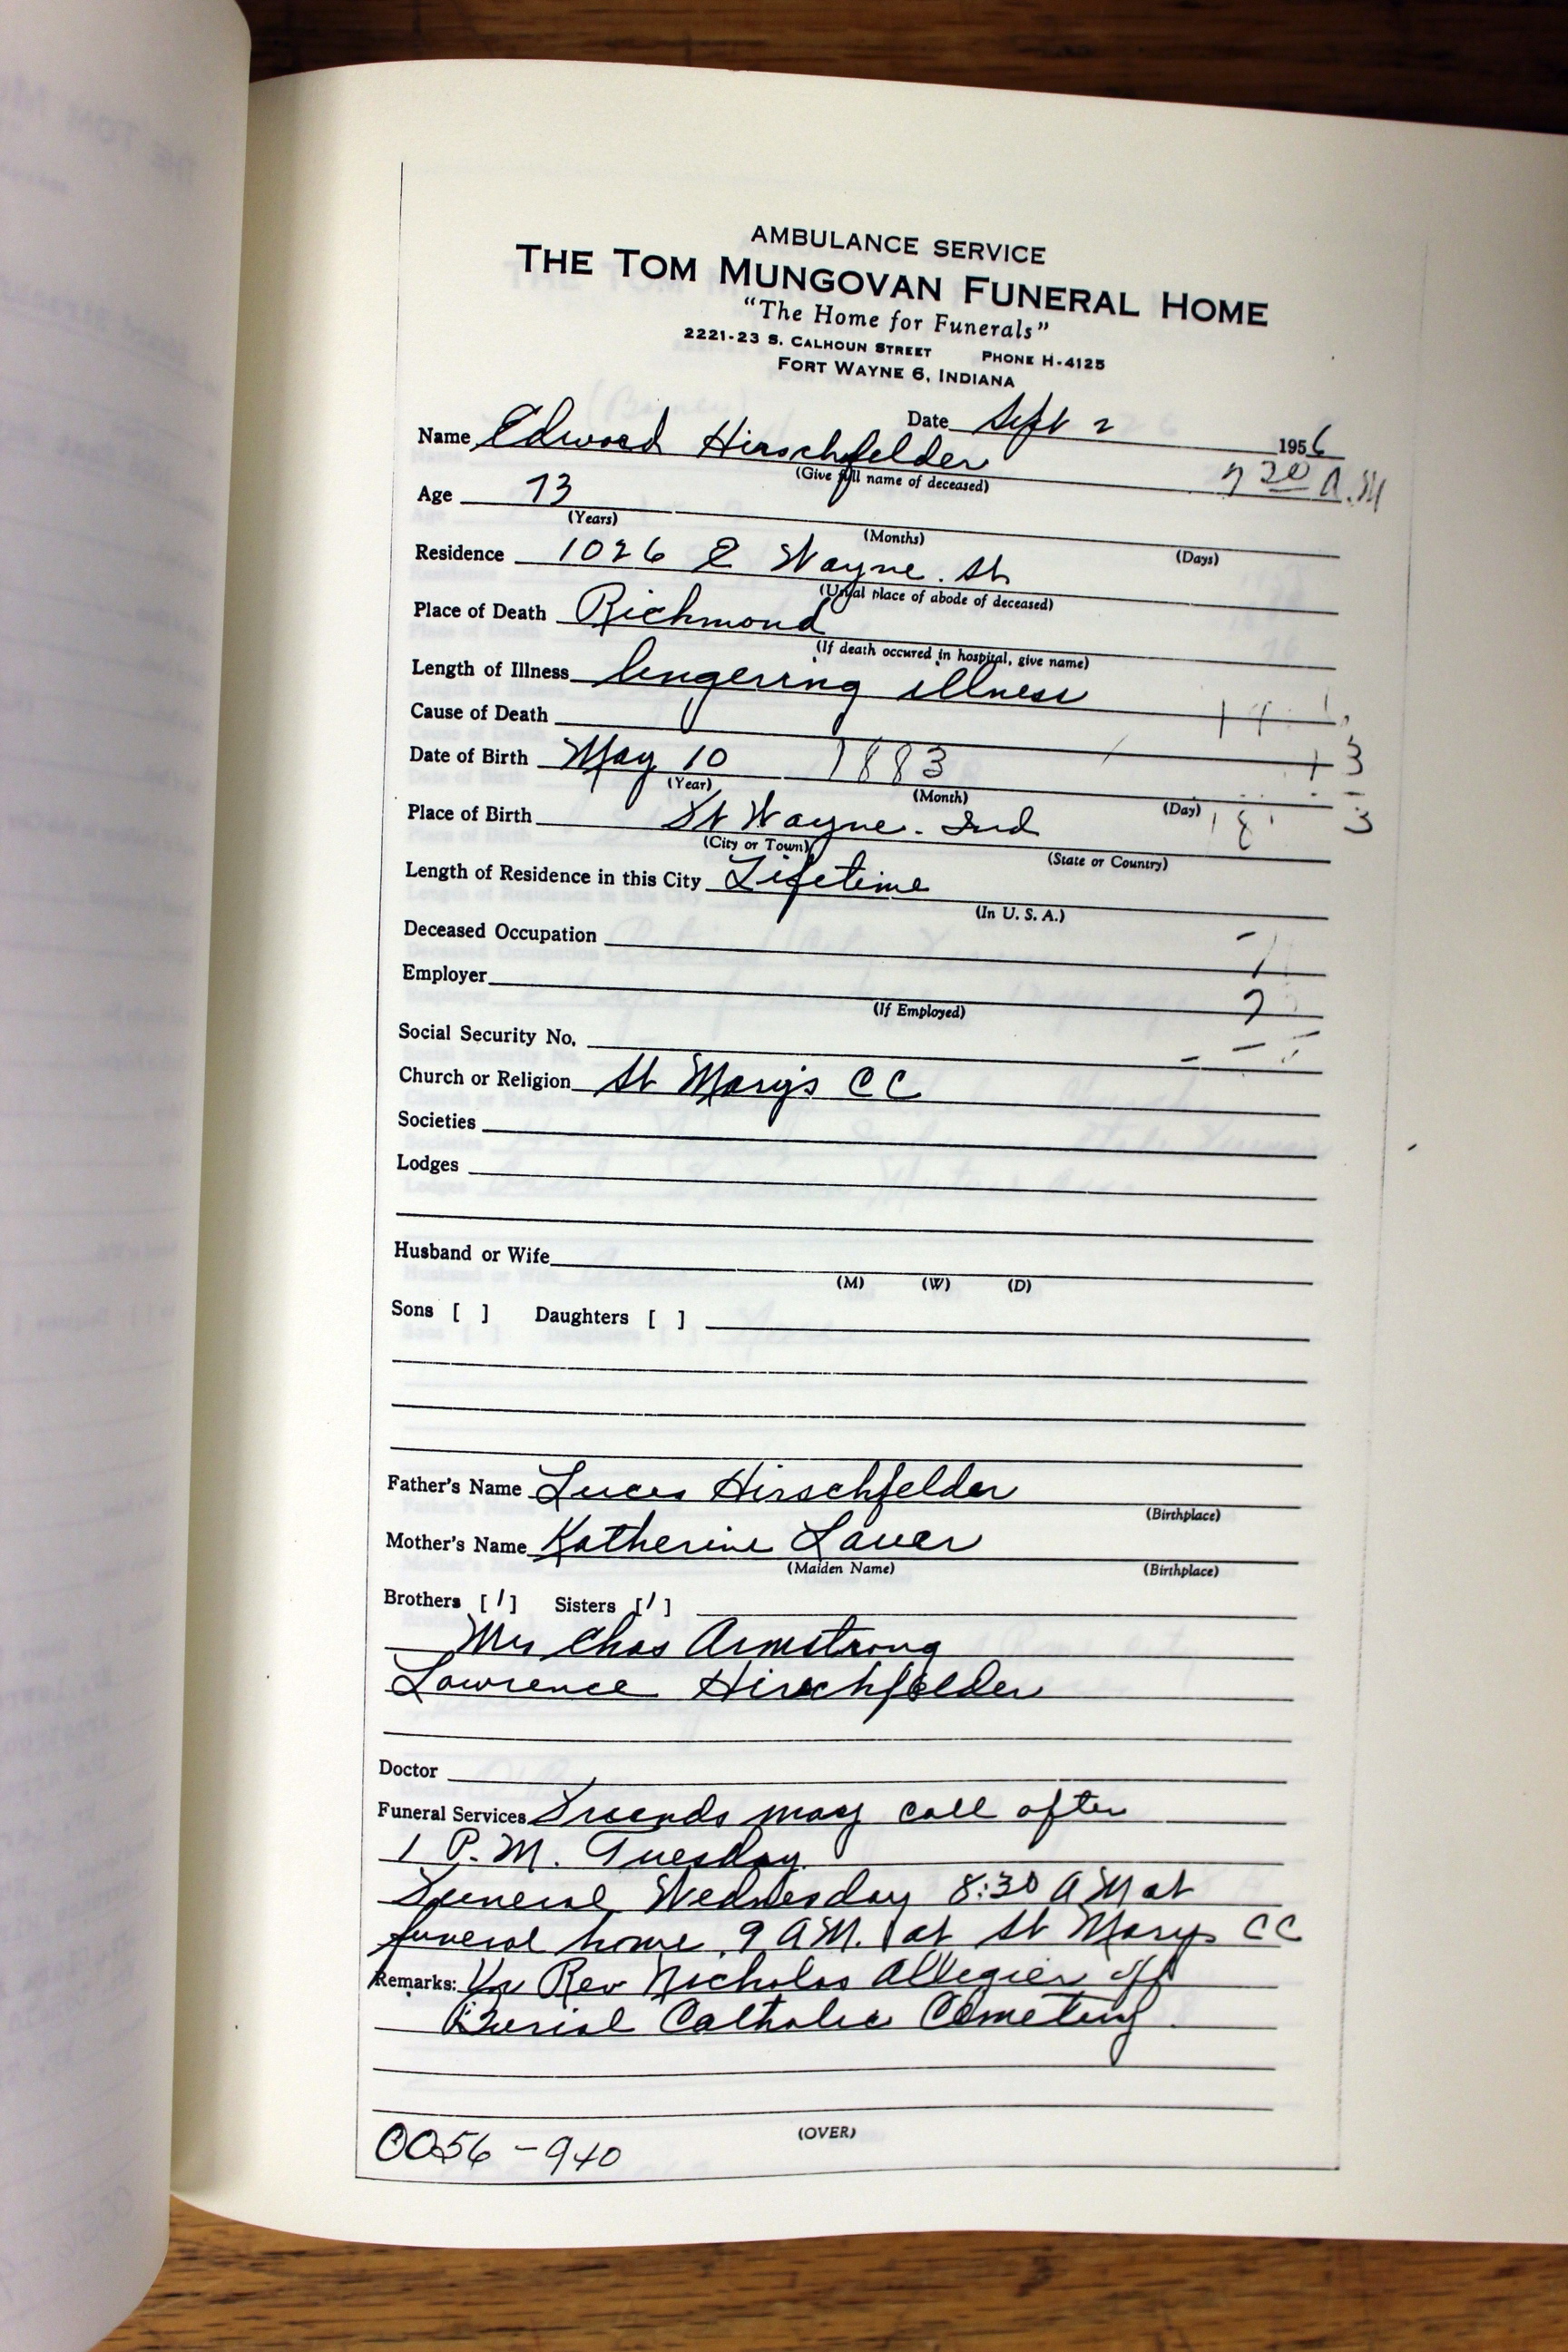 AMBULANCE SERVICE
THE TOM MUNGOVAN FUNERAL HOME
"The Home for Funerals"
2221-23 S. CALHOUN STREET PHONE H-4125
FORT WAYNE 6, INDIANA
Date Sept 2 1956
Name Edward Hirschfelder 7 30 A.M
(Give full name of deceased)
Age 73
(Years) (Months) (Days)
Residence 1026 E Wayne. St
(Usual place of abode of deceased)
Place of Death Richmond
(If death occured in hospital, give name)
Length of Illness lingering illness
Cause of Death
Date of Birth May 10 1883
(Year) (Month) (Day)
Place of Birth Ft Wayne. Ind
(City or Town) (State or Country)
Length of Residence in this City Lifetime
(In U. S. A.)
Deceased Occupation
Employer
(If Employed)
Social Security No.
Church or Religion St Mary's CC
Societies
Lodges
Husband or Wife
(M) (W) (D)
Sons [ ] Daughters [ ]
Father's Name Lucas Hirschfelder
(Birthplace)
Mother's Name Katherine Lauer
(Maiden Name) (Birthplace)
Brothers [1] Sisters [1]
Mrs Chas Armstrong
Lawrence Hirschfelder
Doctor
Funeral Services Friends may call after
1 P.M. Tuesday
Funeral Wednesday 8:30 AM at
funeral home. 9 AM. at St Marys CC
Remarks: Vy Rev Nicholas Allegier off
Burial Catholic Cemetery
(OVER)
0056-940